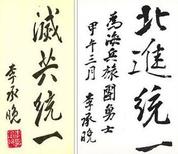 北進統一
為海兵旅團勇士
甲午三月 李承晚
滅共統一
李承晚